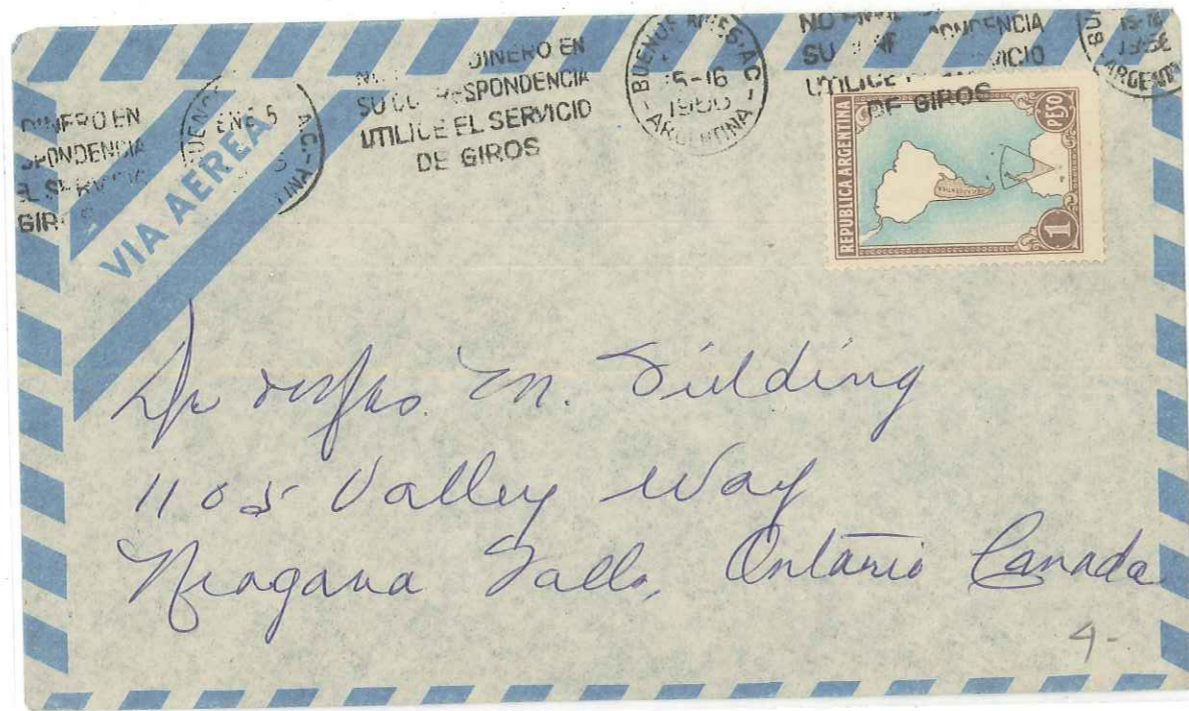 DINERO EN
SPONDENCIA
EL SERVICIO
GIROS
BUENOS A.C.-
ENE 5
TINA
VIA AEREA
DINERO EN
SU CORRESPONDENCIA
UTILICE EL SERVICIO
DE GIROS
BUENOS AIRES-A.C.-
15-16
ARGENTINA
NO ENVIE
SU CORRESPONDENCIA
UTILICE EL SERVICIO
DE GIROS
BU
ARGENTI
REPUBLICA ARGENTINA
PESO
1
Dr & Mrs. M. Fielding
1105 Valley Way
Niagara Falls, Ontario Canada
4-